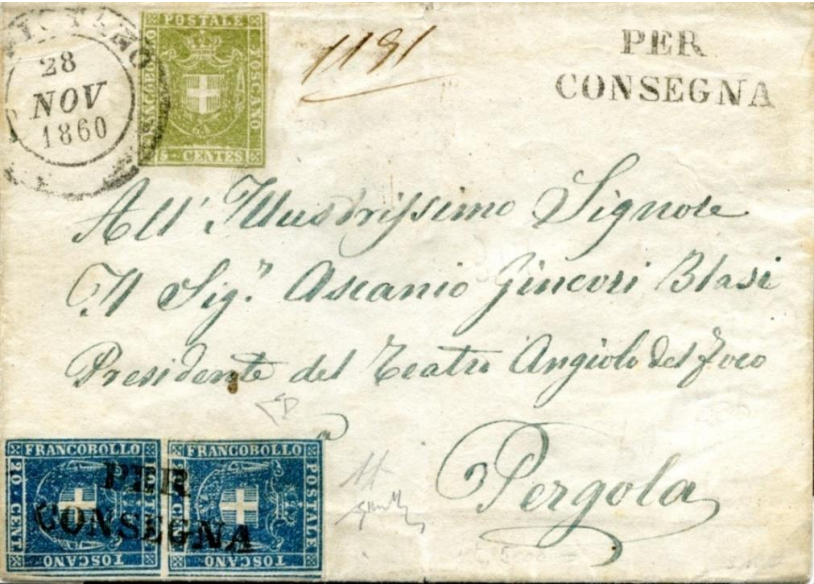 28
NOV
1860
POSTALE
FRANCOBOLLO
TOSCANO
5 · CENTES
1191
PER
CONSEGNA
All' Illustrissimo Signore
Il Sig.r Ascanio Ginori Blasi
Presidente del Teatro Angiolo del foco
Pergola
FRANCOBOLLO
POSTALE
20 · CENT
TOSCANO
FRANCOBOLLO
POSTALE
TOSCANO
PER
CONSEGNA